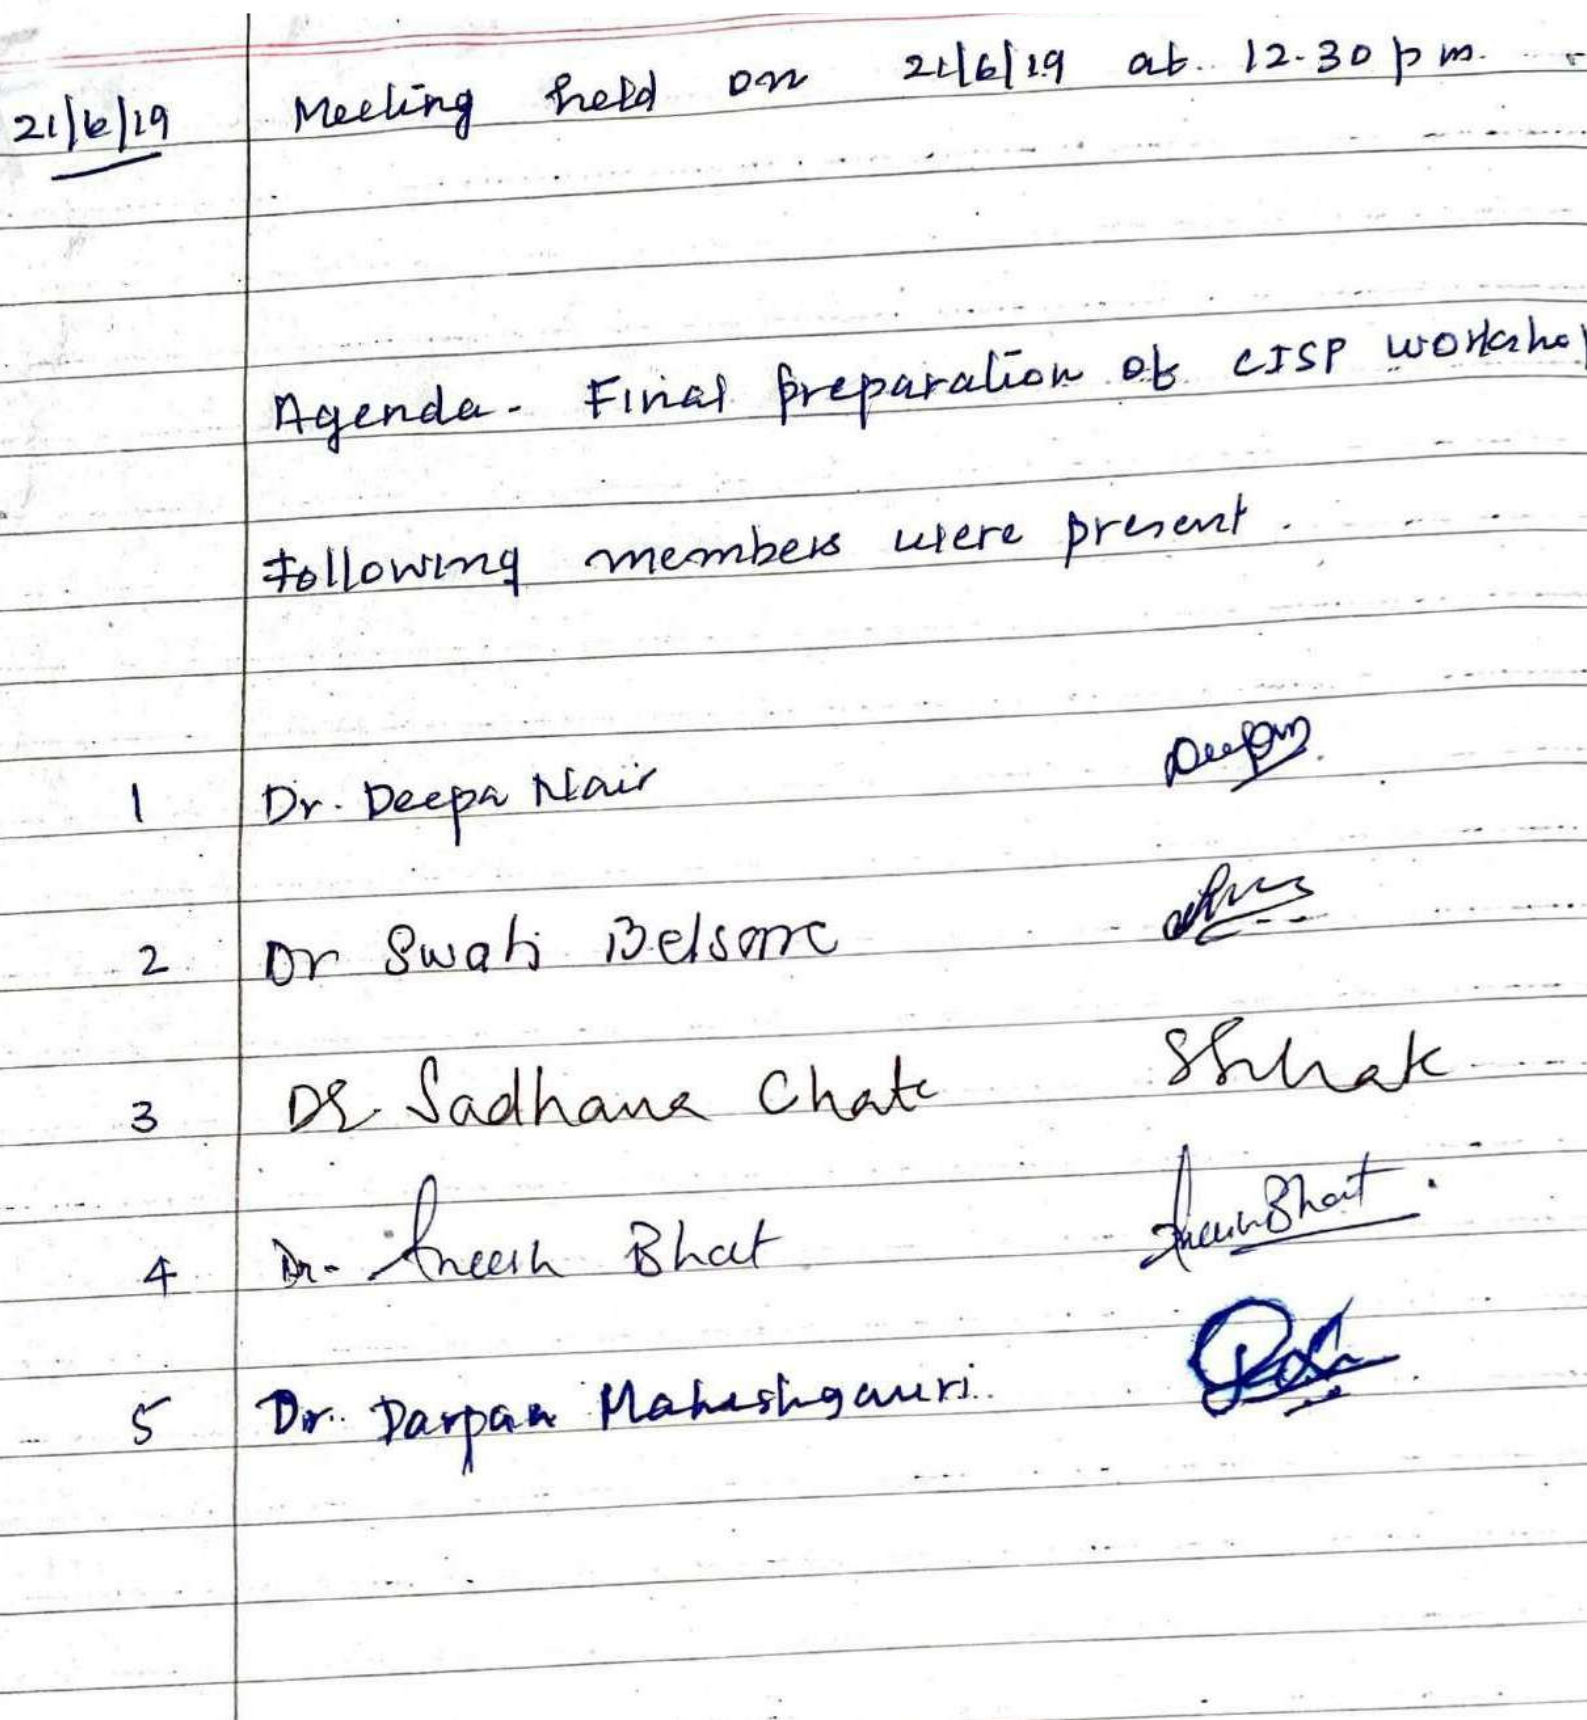 Meeting held on 21/6/19 at 12.30 pm.
21/6/19
Agenda - Final preparation of CISP worksho
Following members were present.
1 Dr. Deepa Nair
2 Dr Swati Belsare
3 Dr Sadhana Chate
4 Dr. Aneesh Bhat Aneesh Bhat.
5 Dr. Darpan Maheshgauri.